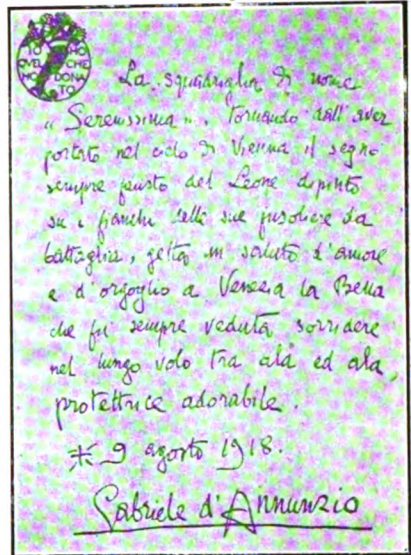 IO HO
QVEL CHE
HO DONA
TO
La squadriglia di nome
"Serenissima", tornando dall'aver
portato nel cielo di Vienna il segno
sempre fausto del Leone dipinto
su i fianchi delle sue fusoliere da
battaglia, getta un saluto d'amore
e d'orgoglio a Venezia la Bella
che fu sempre veduta sorridere
nel lungo volo tra ala ed ala,
protettrice adorabile.
9 agosto 1918.
Gabriele d'Annunzio